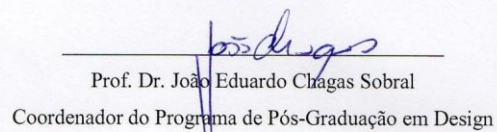 João Chagas
Prof. Dr. João Eduardo Chagas Sobral
Coordenador do Programa de Pós-Graduação em Design